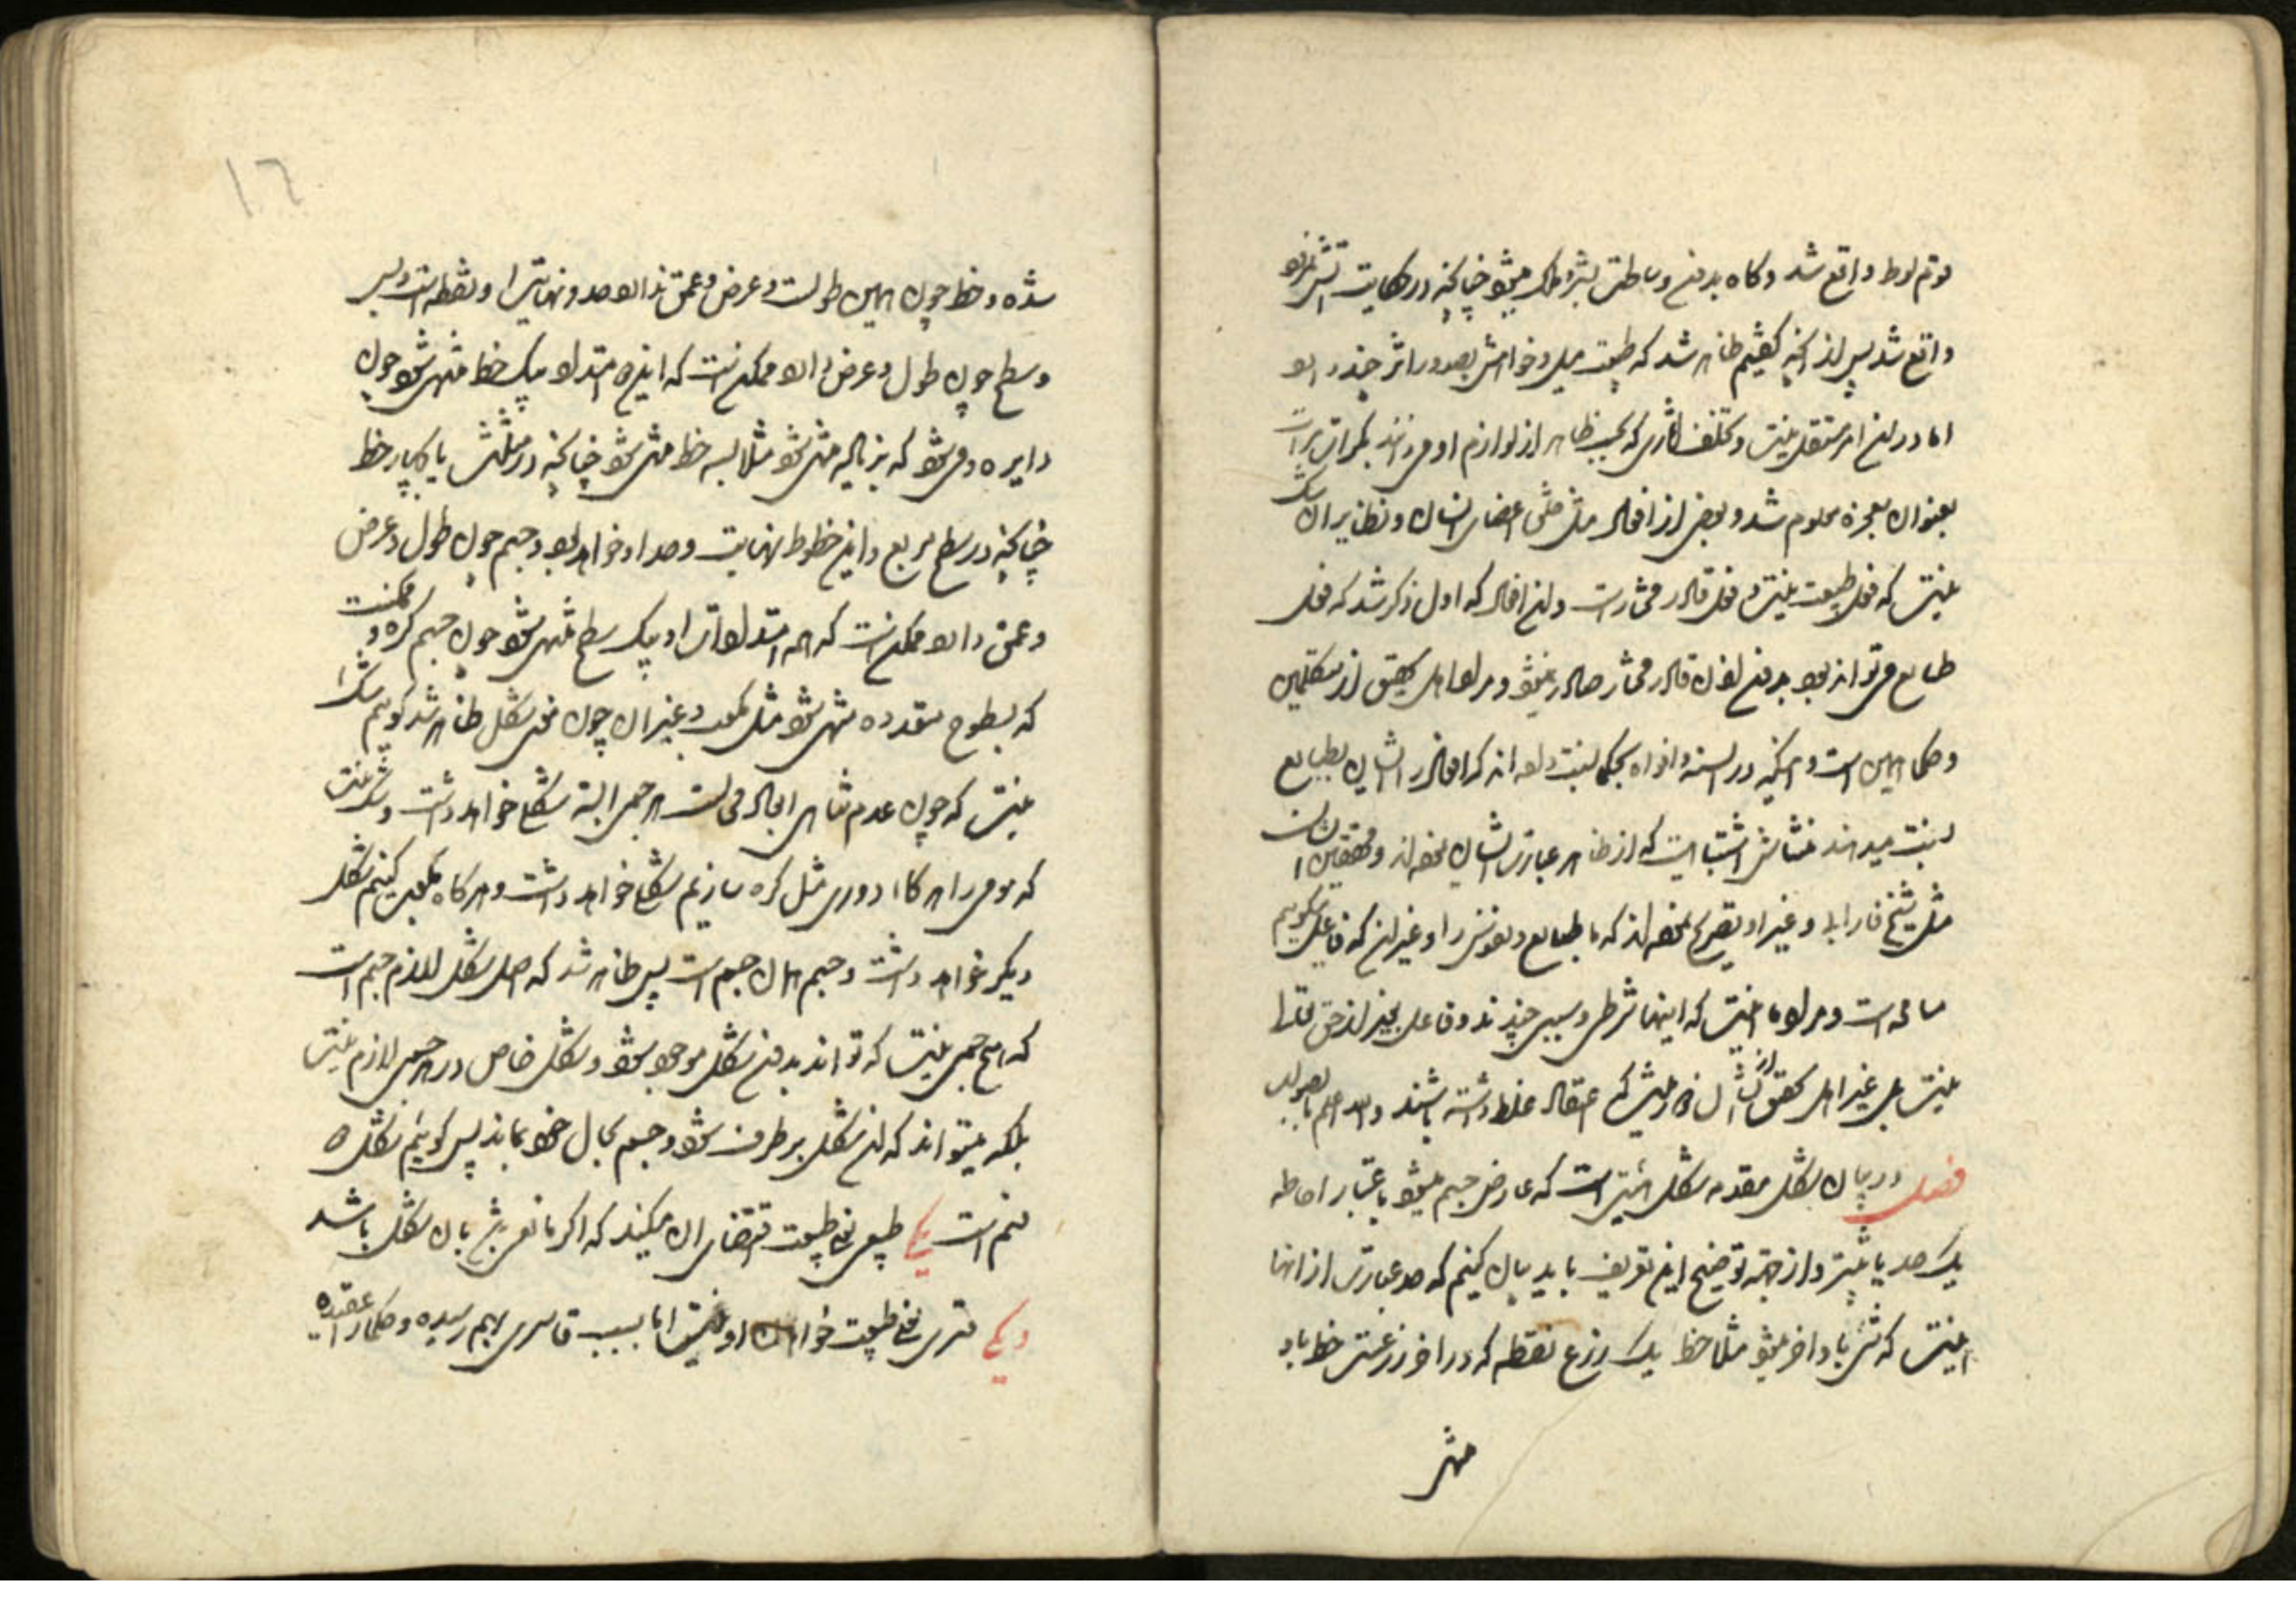 قوم لوط واقع شد و کاه بدون وساطت بشر و ملک میشود چنانکه در حکایت آتش نمرود
واقع شد پس از آنچه کفتیم ظاهر شد که طبیعت میل و خواهش بصدور اثر چند دارد
اما در این امر مستقل نیست و تخلف آثاری که بحسب ظاهر از لوازم او می دانند بکرات و مرات
بعنوان معجزه معلوم شد و بعضی از افعال مثل مشی اعضای انسان و نظایر آن شک
نیست که فعل طبیعت نیست و فعل قادر مختار است و این افعال که اول ذکر شد که فعل
طبایع می تواند بود بدون اذن قادر مختار صادر نمیشود و مراد اهل تحقیق از متکلمین
و حکما همین است و آنچه در السنه و افواه بحکما نسبت داده اند که افعال را ایشان بطبایع
نسبت میدهند منشاش اشتباهیست که از ظاهر عبارت ایشان نموده اند و محققین ایشان
مثل شیخ فارابی و غیر او تصریح نموده اند که ما طبایع و نفوس را و غیر این که فاعل میکوییم
مسامحه است و مراد ما اینست که اینها شرطی و سببی چندند و فاعل بجز از حق تعالی
نیست بلی غیر اهل تحقیق از ایشان میشود که اعتقاد غلط داشته باشند و الله اعلم بالصواب
فصل در بیان شکل مقدمه شکل هیئتی است که عارض جسم میشود باعتبار احاطه
یک حد یا بیشتر و از جهة توضیح این تعریف باید بیان کنیم که حد عبارت از انها
اینست که شی باو آخر میشود مثلا خط یک زرع نقطه که در آخر زرعست خط باو
منتهی
١٦
شده و خط چون همین طولست و عرض و عمق ندارد حد و نهایتش او نقطه است و بس
و سطح چون طول و عرض دارد ممکن است که این دو امتداد او بیک خط منتهی شود چون
دایره و می شود که بزیاده منتهی شود مثلا بسه خط منتهی شود چنانکه در مثلث یا بچهار خط
چنانکه در سطح مربع و این خطوط نهایت و حد او خواهد بود و جسم چون طول و عرض
و عمق دارد ممکن است که همه امتدادات او بیک سطح منتهی شود چون جسم کره و ممکنست
که بسطوح متعدده منتهی شود مثل مکعب و غیر آن چون معنی شکل ظاهر شد کوییم شک
نیست که چون عدم تناهی ابعاد محالست هر جسمی البته شکلی خواهد داشت و شک نیست
که مومی را هر کاه دوری مثل کره سازیم شکلی خواهد داشت و هر کاه مکعب کنیم شکل
دیکر خواهد داشت و جسم همان جسم است پس ظاهر شد که اصل شکل لازم جسم است
که هیچ جسمی نیست که تواند بدون شکل موجود شود و شکل خاص در هر جسمی لازم نیست
بلکه میتواند که این شکل بر طرف شود و جسم بحال خود بماند پس کوییم شکل دو
قسم است یکی طبیعی یعنی طبیعت اقتضای آن میکند که اگر مانعی نباشد بآن شکل باشد
دیکری قسری یعنی طبیعت خواهان او نیست اما بسبب قاسری بهم رسیده و حکما را عقیده